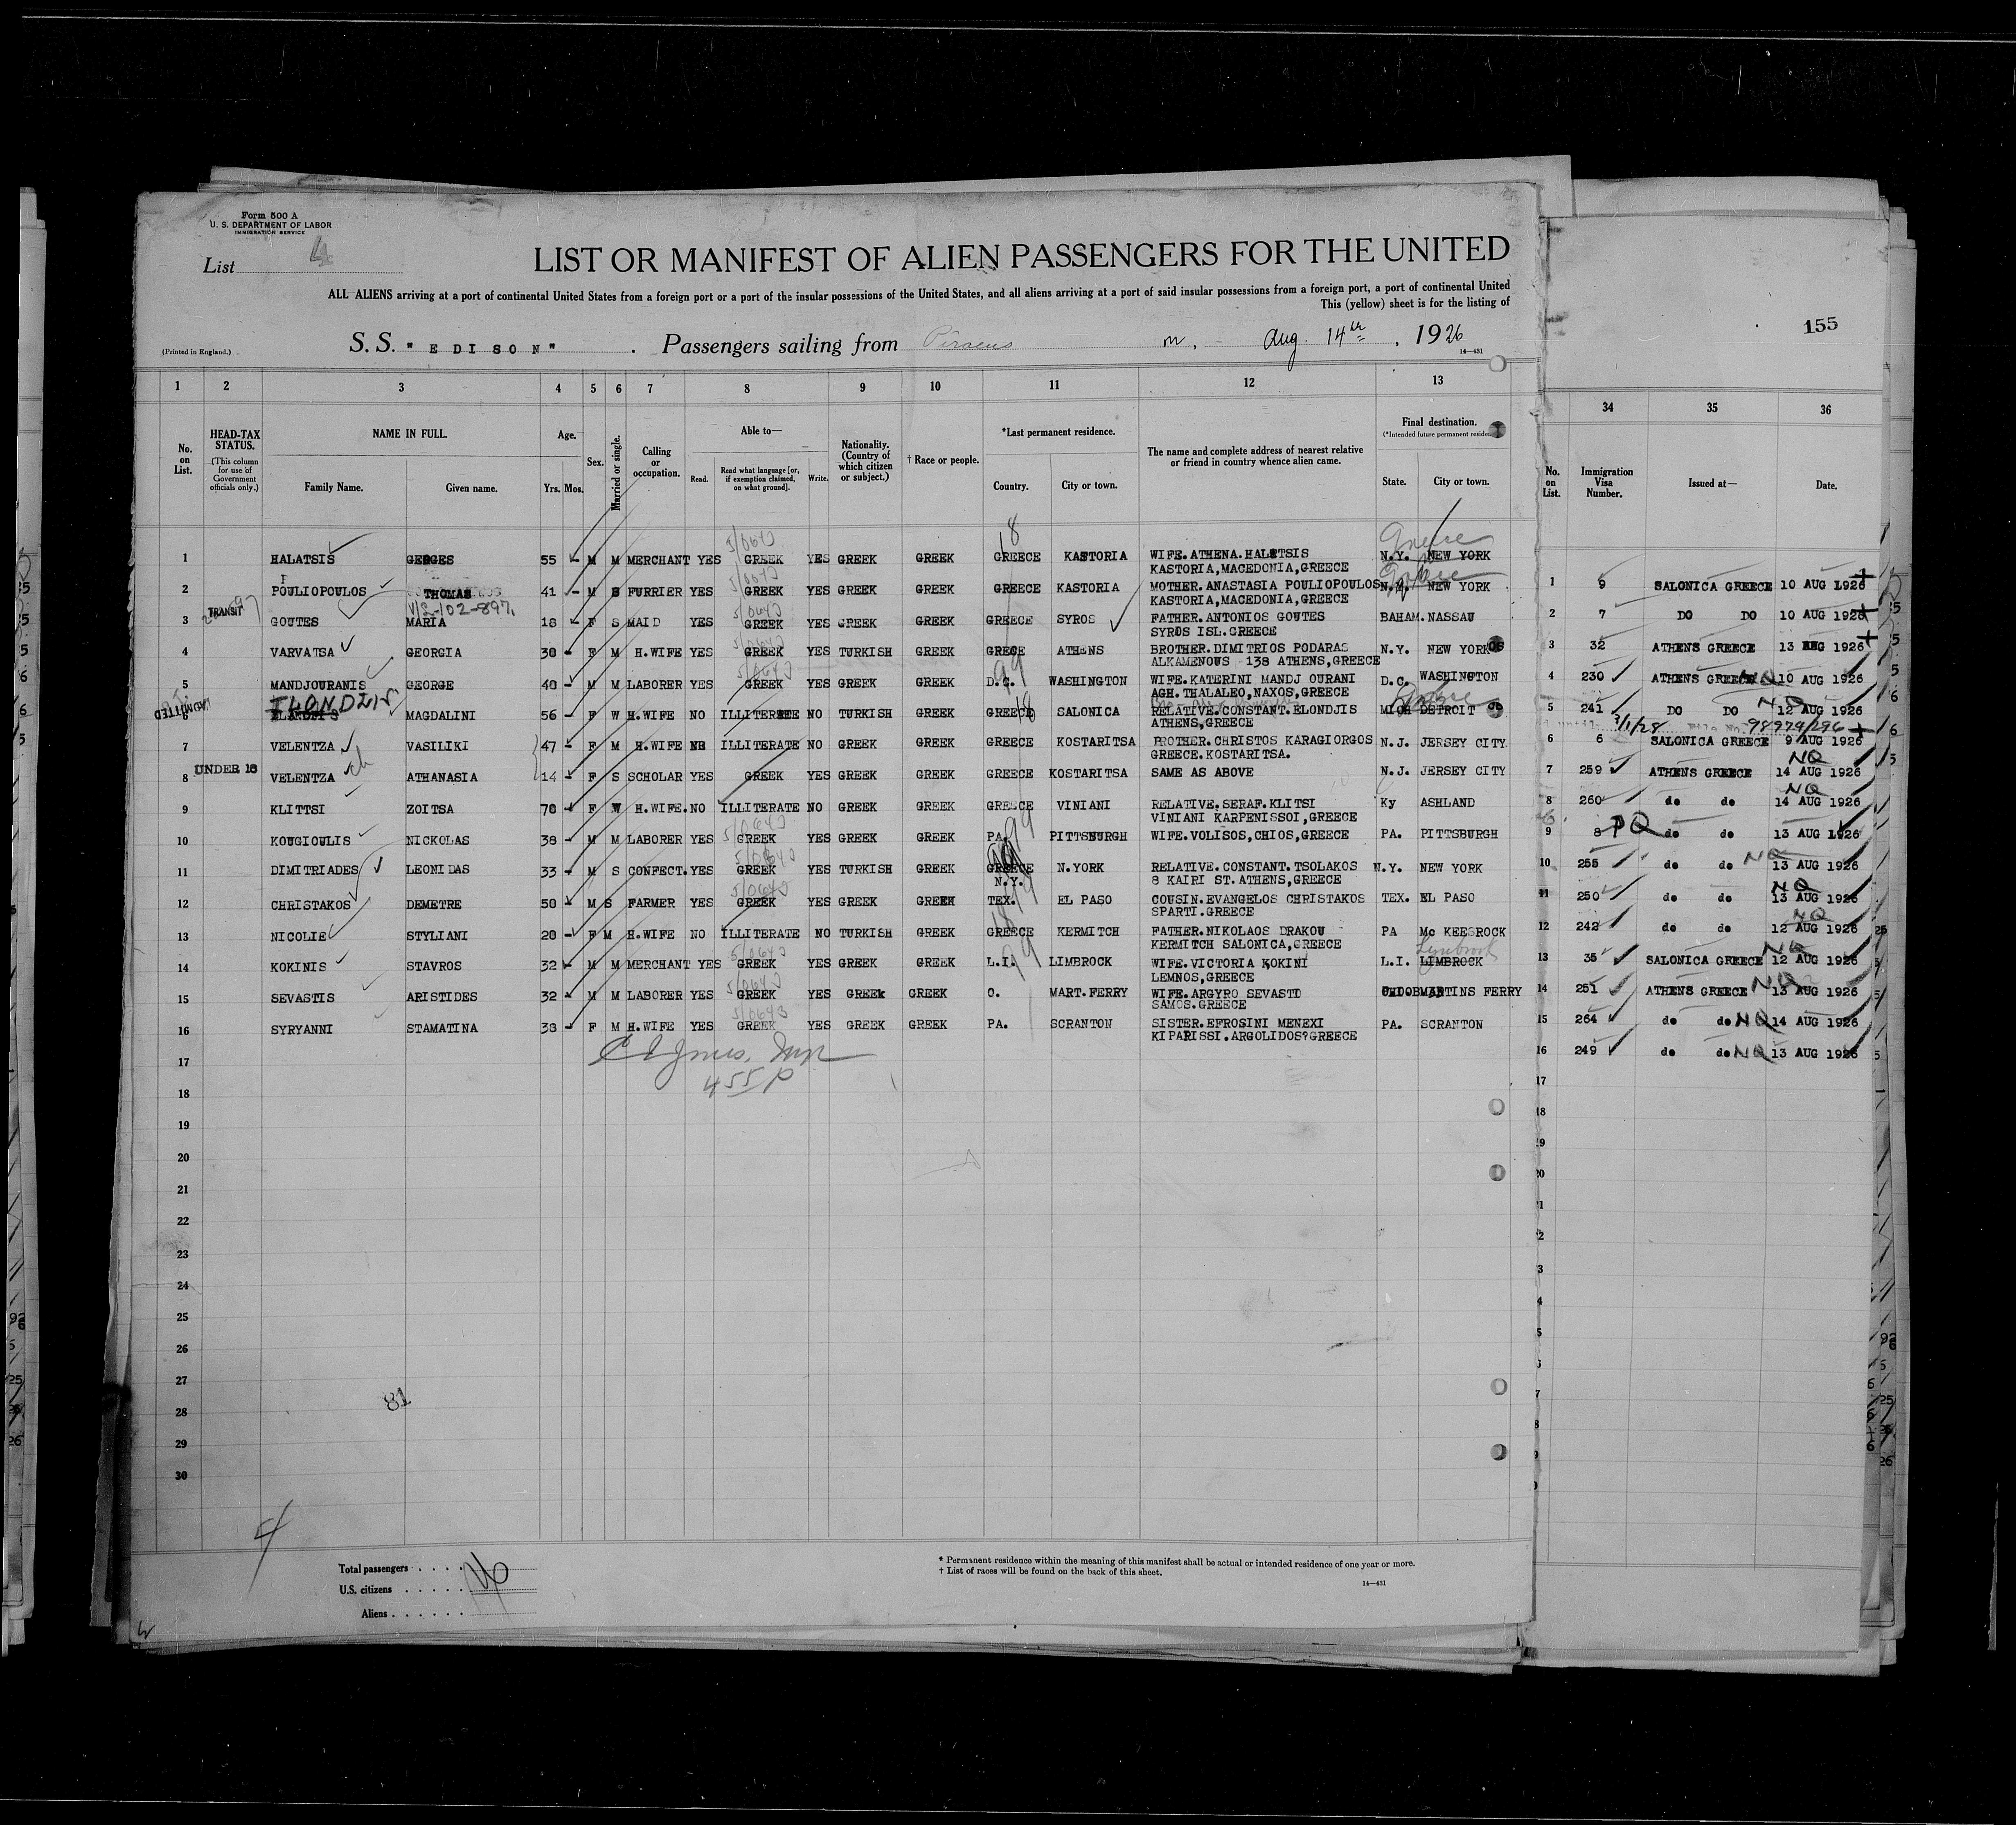 Form 500 A
U. S. DEPARTMENT OF LABOR
IMMIGRATION SERVICE
List 4
LIST OR MANIFEST OF ALIEN PASSENGERS FOR THE UNITED
ALL ALIENS arriving at a port of continental United States from a foreign port or a port of the insular possessions of the United States, and all aliens arriving at a port of said insular possessions from a foreign port, a port of continental United
This (yellow) sheet is for the listing of
155
(Printed in England.) S. S. "EDISON" . Passengers sailing from Piraeus Aug. 14th , 1926
14—431
1 2 3 4 5 6 7 8 9 10 11 12 13 34 35 36
No. on List. HEAD-TAX STATUS. (This column for use of Government officials only.) NAME IN FULL. Family Name. Given name. Age. Yrs. Mos. Sex. Married or single. Calling or occupation. Able to— Read. Read what language [or, if exemption claimed, on what ground]. Write. Nationality. (Country of which citizen or subject.) † Race or people. *Last permanent residence. Country. City or town. The name and complete address of nearest relative or friend in country whence alien came. Final destination. State. City or town.
No. on List. Immigration Visa Number. Issued at— Date.
1 HALATSIS GEORGES 55 - M M MERCHANT YES GREEK YES GREEK GREEK GREECE KASTORIA WIFE.ATHENA.HALATSIS N.Y. NEW YORK
KASTORIA,MACEDONIA,GREECE
2 POULIOPOULOS THOMAS 41 - M S FURRIER YES GREEK YES GREEK GREEK GREECE KASTORIA MOTHER.ANASTASIA POULIOPOULOS N.Y. NEW YORK
KASTORIA,MACEDONIA,GREECE
V/L-102-897.
3 TRANSIT GOUTES MARIA 18 - F S MAID YES GREEK YES GREEK GREEK GREECE SYROS FATHER.ANTONIOS GOUTES BAHAM. NASSAU
SYROS ISL.GREECE
4 VARVATSA GEORGIA 30 - F M H.WIFE YES GREEK YES TURKISH GREEK GRECE ATHENS BROTHER.DIMITRIOS PODARAS N.Y. NEW YORK
ALKAMENOUS 138 ATHENS,GREECE
5 MANDJOURANIS GEORGE 40 - M M LABORER YES GREEK YES GREEK GREEK D.C. WASHINGTON WIFE.KATERINI MANDJ OURANI D.C. WASHINGTON
AGH.THALALEO,NAXOS,GREECE
ADMITTED
6 MAGDALINI 56 - F W H.WIFE NO ILLITERATE NO TURKISH GREEK GREECE SALONICA RELATIVE.CONSTANT.ELONDJIS MICH DETROIT
ATHENS,GREECE
7 VELENTZA VASILIKI 47 - F M H.WIFE NO ILLITERATE NO GREEK GREEK GREECE KOSTARITSA BROTHER.CHRISTOS KARAGIORGOS N.J. JERSEY CITY
GREECE.KOSTARITSA.
8 UNDER 16 VELENTZA ATHANASIA 14 - F S SCHOLAR YES GREEK YES GREEK GREEK GREECE KOSTARITSA SAME AS ABOVE N.J. JERSEY CITY
9 KLITTSI ZOITSA 70 - F W H.WIFE. NO ILLITERATE NO GREEK GREEK GREECE VINIANI RELATIVE.SERAF.KLITSI Ky ASHLAND
VINIANI KARPENISSOI,GREECE
10 KOUGIOULIS NICKOLAS 38 - M M LABORER YES GREEK YES GREEK GREEK PA. PITTSBURGH WIFE.VOLISOS,CHIOS,GREECE PA. PITTSBURGH
11 DIMITRIADES LEONIDAS 33 - M S CONFECT. YES GREEK YES TURKISH GREEK GREECE N.Y. N.YORK RELATIVE.CONSTANT.TSOLAKOS N.Y. NEW YORK
8 KAIRI ST.ATHENS,GREECE
12 CHRISTAKOS DEMETRE 50 - M S FARMER YES GREEK YES GREEK GREEK TEX. EL PASO COUSIN.EVANGELOS CHRISTAKOS TEX. EL PASO
SPARTI.GREECE
13 NICOLIE STYLIANI 20 - F M H.WIFE NO ILLITERATE NO TURKISH GREEK GREECE KERMITCH FATHER.NIKOLAOS DRAKOU PA Mc KEESROCK
KERMITCH SALONICA,GREECE
14 KOKINIS STAVROS 32 - M M MERCHANT YES GREEK YES GREEK GREEK L.I. LIMBROCK WIFE.VICTORIA KOKINI L.I. LIMBROCK
Lynbrook
LEMNOS,GREECE
15 SEVASTIS ARISTIDES 32 - M M LABORER YES GREEK YES GREEK GREEK O. MART.FERRY WIFE.ARGYRO SEVASTI MARTINS FERRY
SAMOS.GREECE
16 SYRYANNI STAMATINA 38 - F M H.WIFE YES GREEK YES GREEK GREEK PA. SCRANTON SISTER.EFROSINI MENEXI PA. SCRANTON
KIPARISSI.ARGOLIDOS?GREECE
455 P
17
18
19
20
21
22
23
24
25
26
27
28
29
30
81
4
Total passengers
U.S. citizens
Aliens
* Permanent residence within the meaning of this manifest shall be actual or intended residence of one year or more.
† List of races will be found on the back of this sheet.
14—431
1 9 SALONICA GREECE 10 AUG 1926
2 7 DO DO 10 AUG 1926
3 32 ATHENS GREECE 13 AUG 1926
4 230 ATHENS GREECE NQ 10 AUG 1926
5 241 DO DO NQ 12 AUG 1926
3/1/28 98979/296
6 6 SALONICA GREECE 9 AUG 1926
7 259 ATHENS GREECE NQ 14 AUG 1926
8 260 do do NQ 14 AUG 1926
9 8 PQ do do 13 AUG 1926
10 255 do do NQ 13 AUG 1926
11 250 do do NQ 13 AUG 1926
12 242 do do NQ 12 AUG 1926
13 35 SALONICA GREECE NQ 12 AUG 1926
14 251 ATHENS GREECE NQ 13 AUG 1926
15 264 do do NQ 14 AUG 1926
16 249 do do NQ 13 AUG 1926